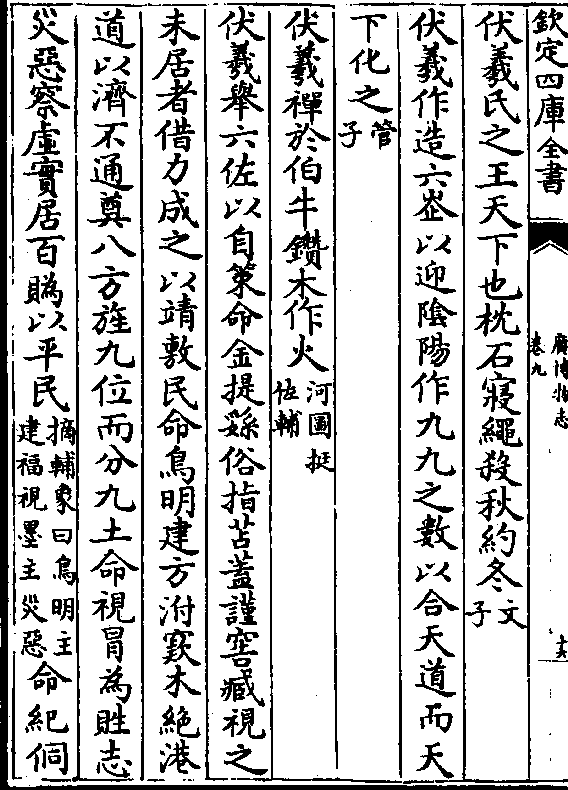 欽定四庫全書
廣博物志
卷九
伏羲氏之王天下也枕石寢繩殺秋約冬文子
伏羲作造六峜以迎陰陽作九九之數以合天道而天
下化之管子
伏羲禪於伯牛鑽木作火河圖挺佐輔
伏羲舉六佐以自策命金提繇俗指苫蓋謹窖藏視之
未居者借力成之以靖敷民命鳥明建方泭竅木絶港
道以濟不通奠八方旌九位而分九土命視冐為貹志
災惡察虛實居百賵以平民摘輔象曰鳥明主建福視墨主災惡命紀侗